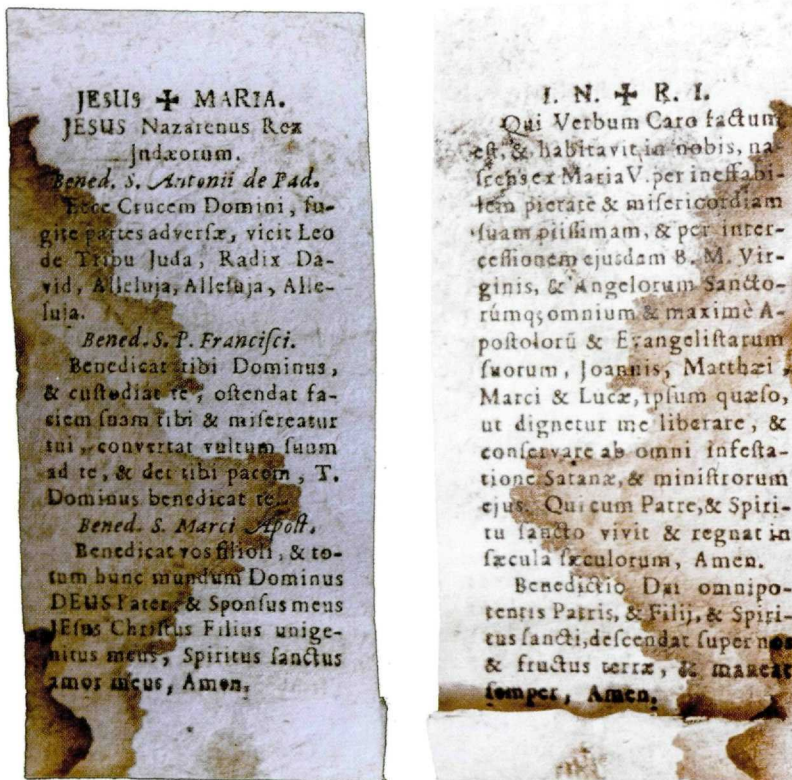 JESUS ✠ MARIA.
JESUS Nazarenus Rex
Judæorum.
Bened. S. Antonii de Pad.
Ecce Crucem Domini, fu-
gite partes adverſæ, vicit Leo
de Tribu Juda, Radix Da-
vid, Alleluja, Alleluja, Alle-
luja.
Bened. S. P. Franciſci.
Benedicat tibi Dominus,
& cuſtodiat te, oſtendat fa-
ciem ſuam tibi & miſereatur
tui, convertat vultum ſuum
ad te, & det tibi pacem, T.
Dominus benedicat te.
Bened. S. Marci Apoſt.
Benedicat vos filioli, & to-
tum hunc mundum Dominus
DEUS Pater, & Sponſus meus
JEſus Chriſtus Filius unige-
nitus meus, Spiritus ſanctus
amor meus, Amen.
I. N. ✠ R. I.
Qui Verbum Caro factum
eſt, & habitavit in nobis, na-
ſcens ex Maria V. per ineffabi-
lem pietatē & miſericordiam
ſuam piiſſimam, & per inter-
ceſſionem ejusdam B. M. Vir-
ginis, & Angelorum Sancto-
rúmq; omnium & maximè A-
poſtolorū & Evangeliſtarum
ſuorum, Joannis, Matthæi,
Marci & Lucæ, ipſum quæſo,
ut dignetur me liberare, &
conſervare ab omni infeſta-
tione Satanæ, & miniſtrorum
ejus. Qui cum Patre, & Spiri-
tu ſancto vivit & regnat in
ſæcula ſæculorum, Amen.
Benedictio Dei omnipo-
tentis Patris, & Filij, & Spiri-
tus ſancti, deſcendat ſuper nos
& fructus terræ, & maneat
ſemper, Amen.